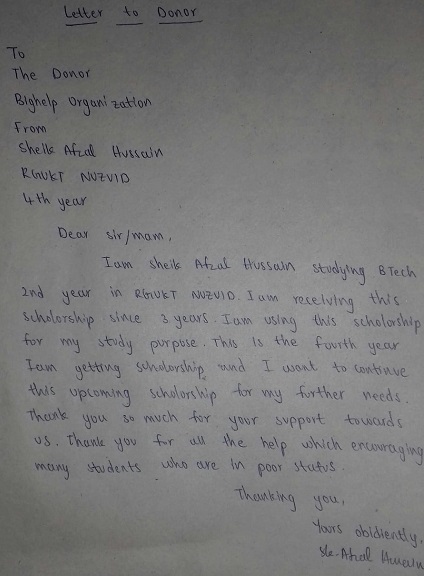 Letter to Donor
To
The Donor
Bighelp Organization
From
Sheik Afzal Hussain
RGUKT NUZVID
4th year
Dear sir/mam,
Iam sheik Afzal Hussain studying B Tech
2nd year in RGUKT NUZVID. Iam receiving this
scholorship since 3 years. Iam using this scholorship
for my study purpose. This is the fourth year
Iam getting scholorship and I want to continue
this upcoming scholorship for my further needs.
Thank you so much for your support towards
us. Thank you for all the help which encouraging
many students who are in poor status.
Thanking you,
Yours obidiently,
Sk. Afzal Hussain